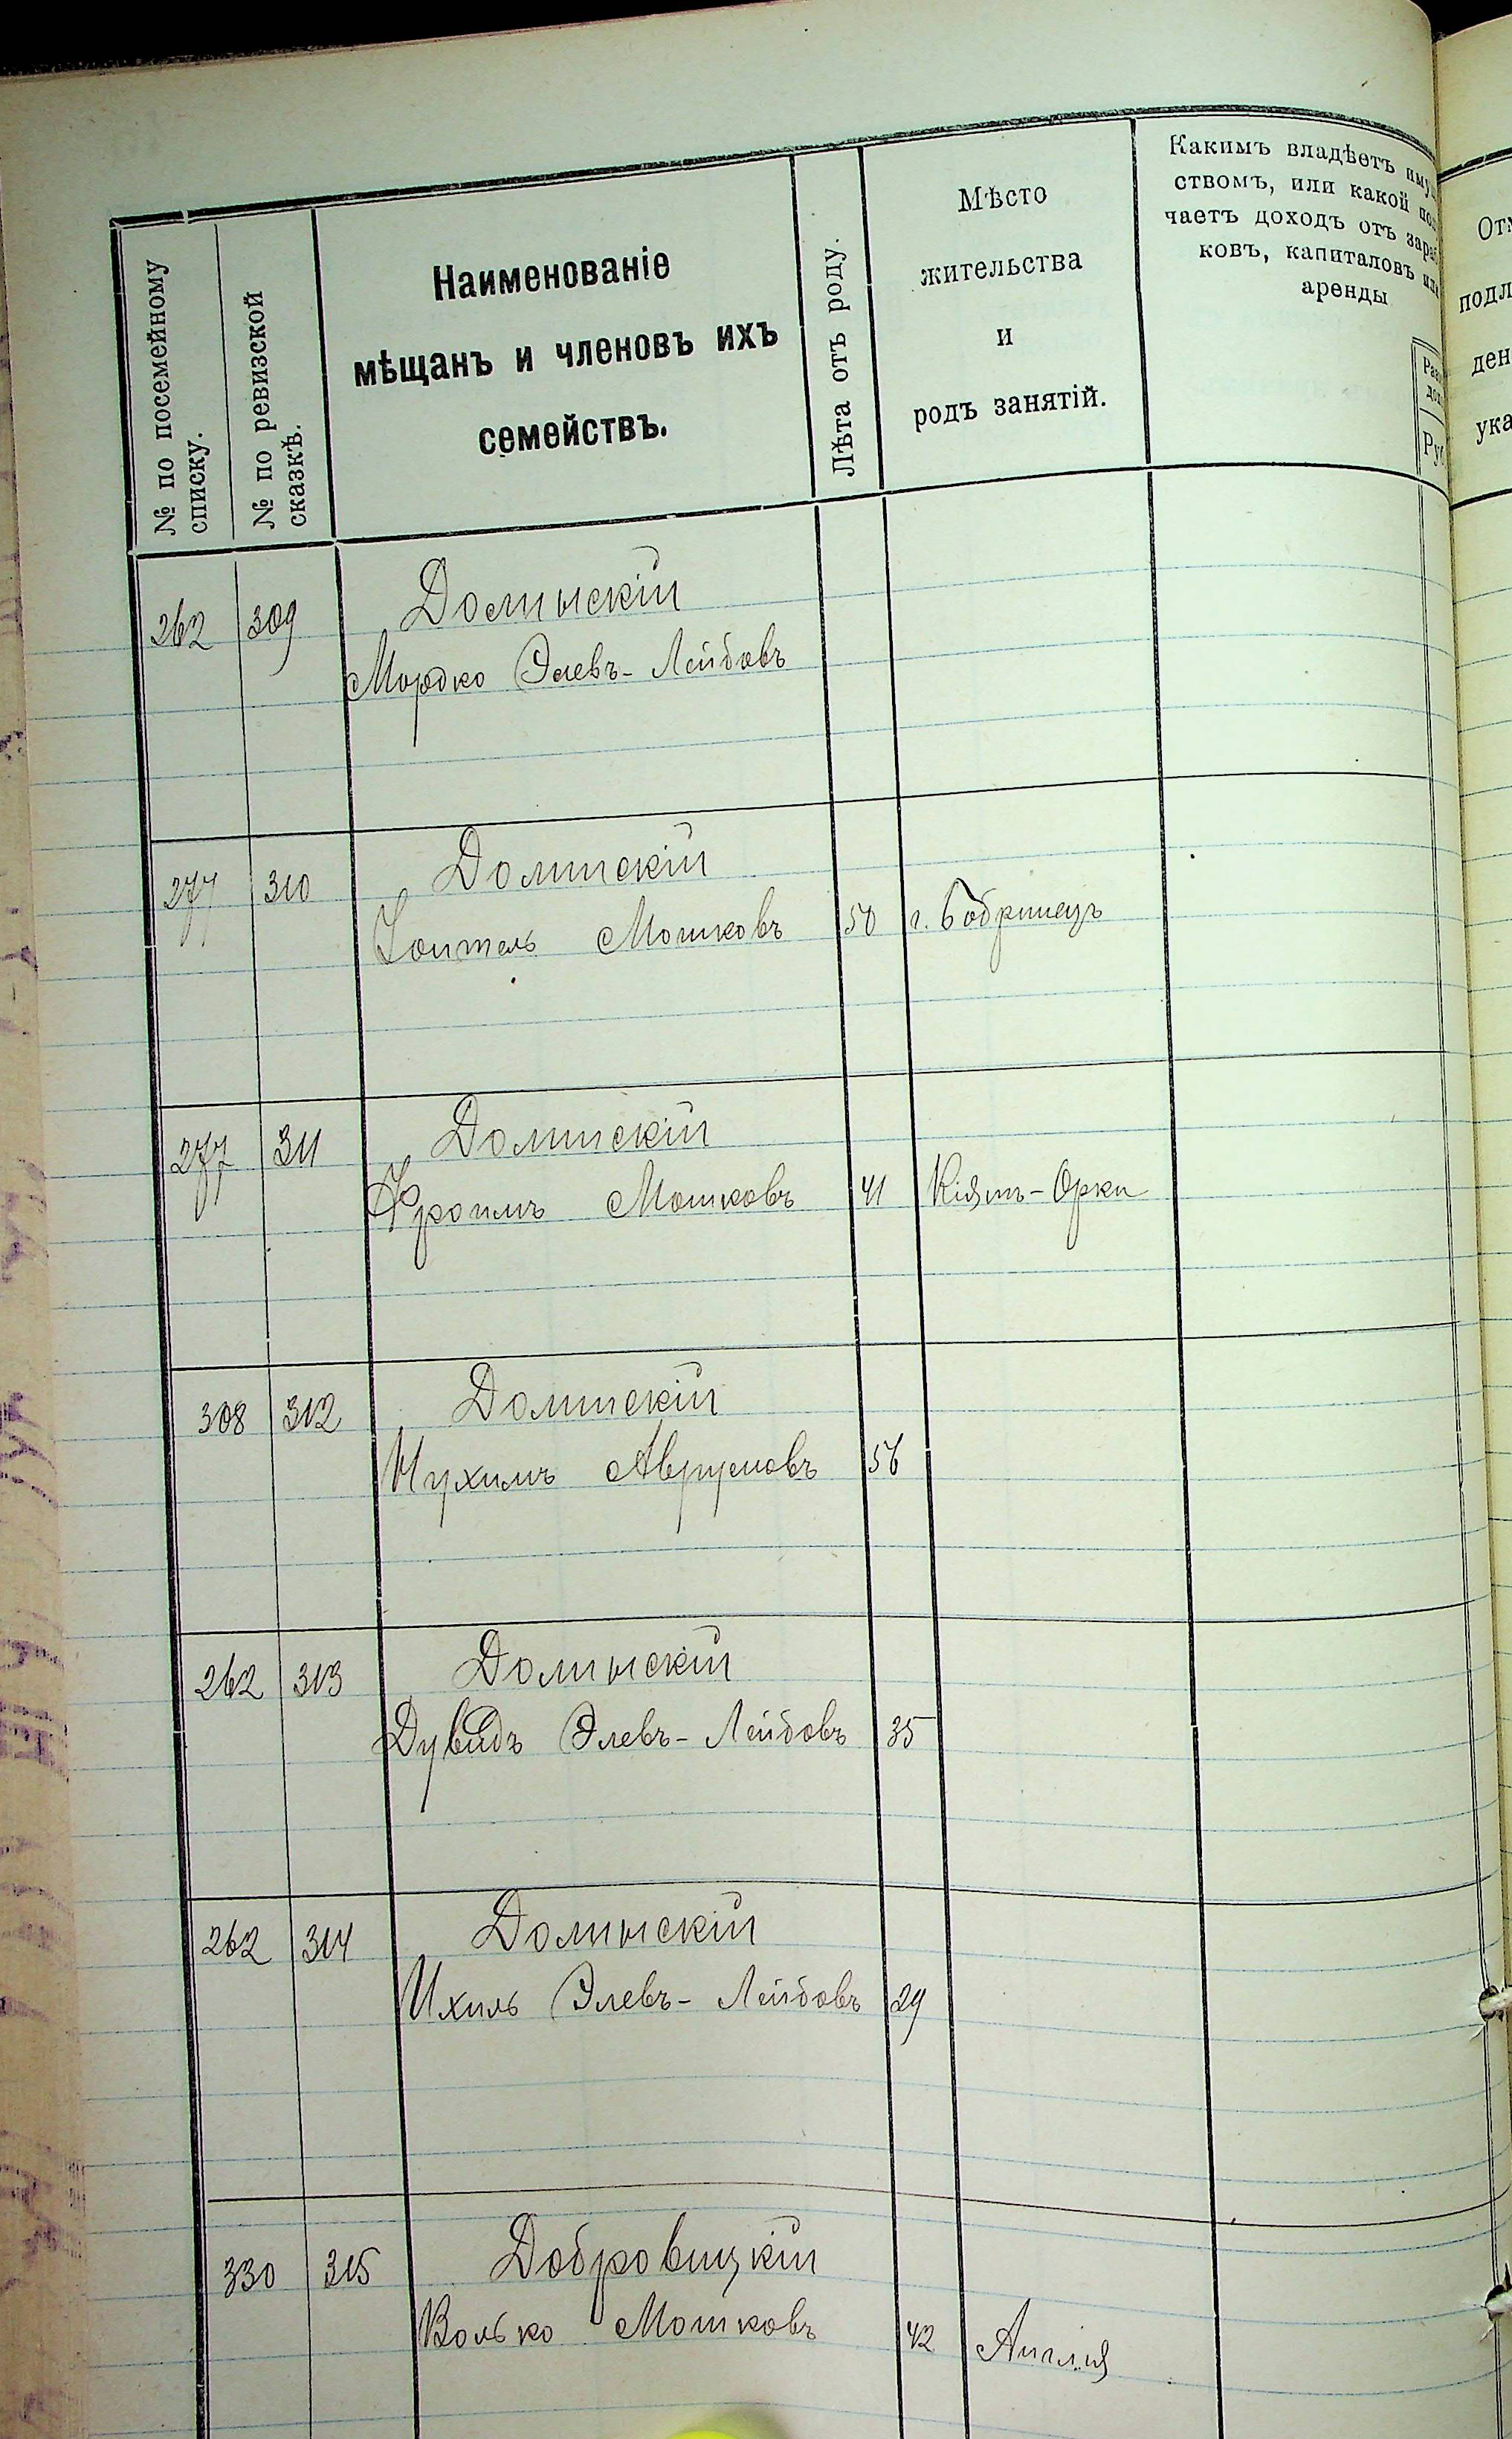 № по посемейному
списку.
№ по ревизской
сказкѣ.
Наименованіе
мѣщанъ и членовъ ихъ
семействъ.
Лѣта отъ роду.
Мѣсто
жительства
и
родъ занятій.
Какимъ владѣетъ иму
ствомъ, или какой пол
чаетъ доходъ отъ зараб
ковъ, капиталовъ или
аренды
Руб
Отм
подл
ден
ука
262 309 Долинскій
Мордко Элевъ-Лейбовъ
277 310 Долинскій
Мошковъ 50 г. Бобринецъ
277 311 Долинскій
Фроимъ Мошковъ 41 Кіятъ-Орки
308 312 Долинскій
Нухимъ Аврумовъ 56
262 313 Долинскій
Дувидъ Элевъ-Лейбовъ 35
262 314 Долинскій
Ихиль Элевъ-Лейбовъ 29
330 315 Добровицкій
Волько Мошковъ 42 Англия